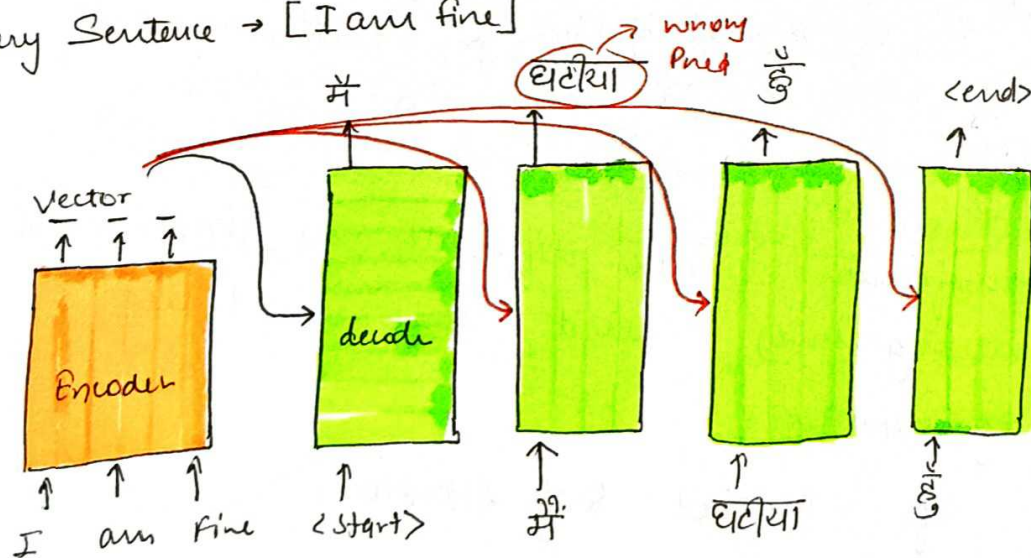 ry Sentence → [I am fine]
wrong
Pred
मैं
घटीया
हुँ
<end>
vector
decode
Encoder
I am Fine
<Start>
मैं
घटीया
हुँ